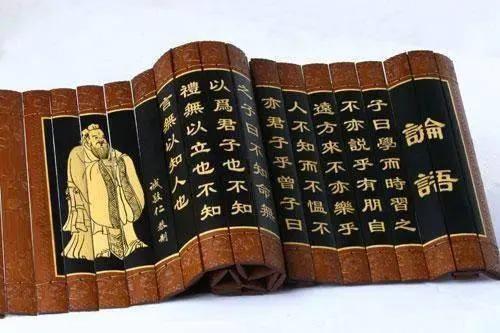 論語
子曰學而時習之
不亦說乎有朋自
遠方來不亦樂乎
人不知而不愠不
亦君子乎曾子曰
之子曰不知命無
以爲君子也不知
禮無以立也不知
言無以知人也
誠敬仁